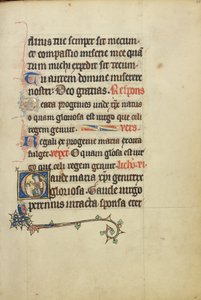 suus tue semper sit mecum
et compassio misericordie me quan
tum michi expedit sit tecum
Tu autem domine miserere
nostri Deo gratias. Respons
Beata progenies unde xpc natus
o quam gloriosa est virgo que celi
regem genuit. vers
Regali ex progenie maria exorta
fulget repet O quam glosa est vir
go que celi regem genuit. lectio
Gaude maria xpi genitrix
gloriosa. Gaude virgo
perennis intacta sponsa eter